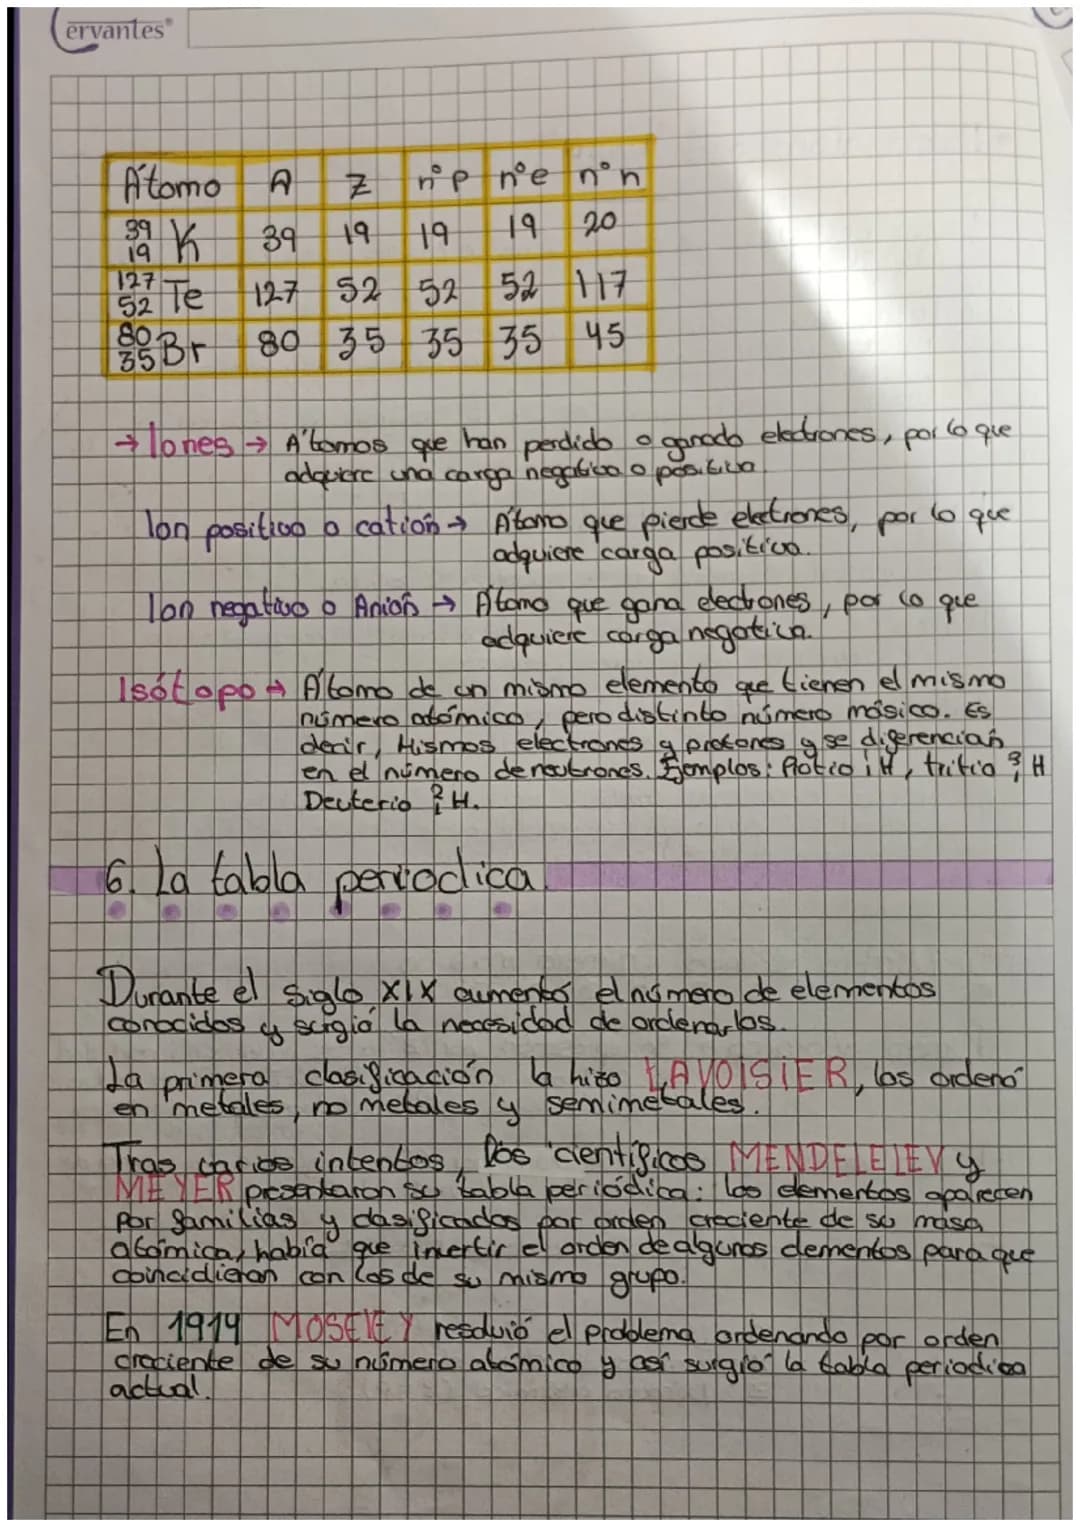 Cervantes®
Átomo A Z nºp nºe nºn
39 19 K 39 19 19 19 20
127 52 Te 127 52 52 52 117
80 35 Br 80 35 35 35 45
→ Iones → Átomos que han perdido o ganado electrones, por lo que
adquiere una carga negativa o positiva.
Ion positivo o catión → Átomo que pierde eletrones, por lo que
adquiere carga positiva.
Ion negativo o Anión → Átomo que gana electrones, por lo que
adquiere carga negativa.
Isótopo → Átomo de un mismo elemento que tienen el mismo
número atómico, pero distinto número másico. Es
decir, Mismos electrones y protones y se diferencian
en el número de neutrones. Ejemplos: Protio 1 1 H, tritio 3 1 H
Deuterio 2 1 H.
6. La tabla periodica.
Durante el siglo XIX aumentó el número de elementos
conocidos y surgió la necesidad de ordenarlos.
La primera clasificación la hizo LAVOISIER, los ordenó
en metales, no metales y semimetales.
Tras varios intentos, Dos científicos MENDELELEV y
MEYER presentaron su tabla periódica: los elementos aparecen
por familias y clasificados por orden creciente de su masa
atómica, había que invertir el orden de algunos elementos para que
coincidieran con los de su mismo grupo.
En 1914 MOSELEY resolvió el problema ordenando por orden
creciente de su número atómico y así surgió la tabla periodica
actual.